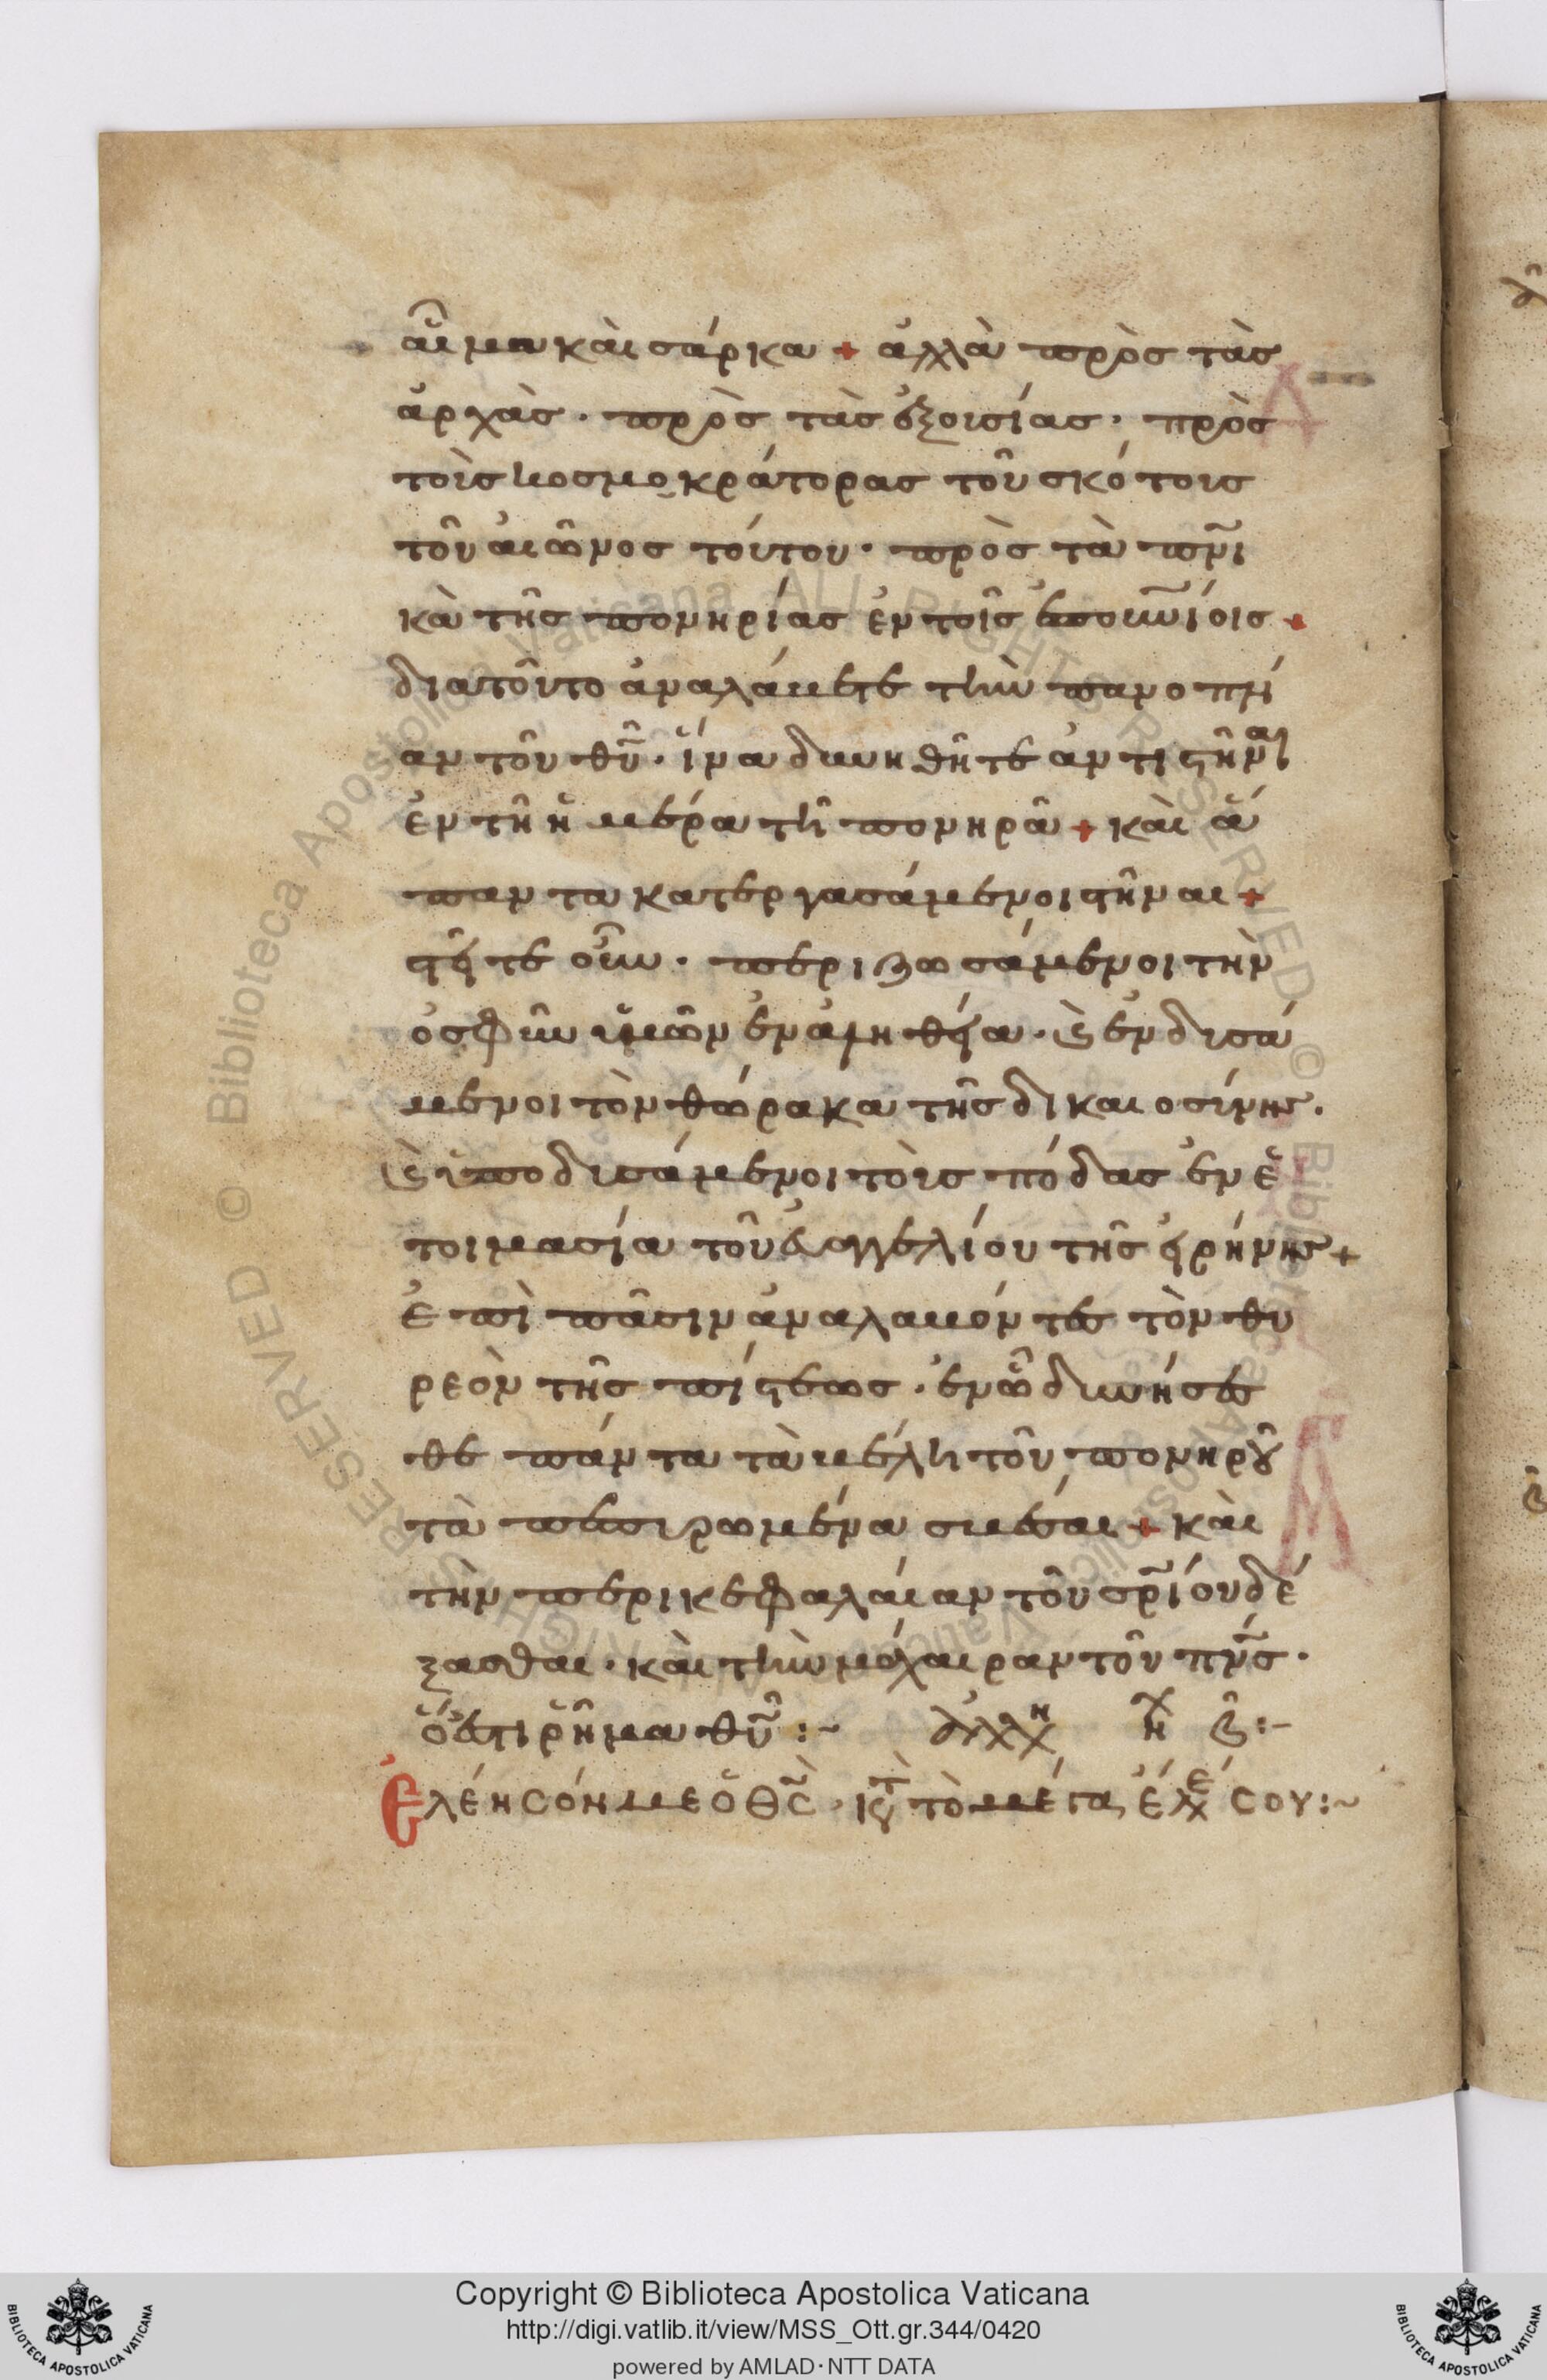 αἷμα καὶ σάρκα + ἀλλὰ πρὸς τὰς
ἀρχὰς · πρὸς τὰς ἐξουσίας · πρὸς
τοὺς κοσμοκράτορας τοῦ σκότους
τοῦ αἰῶνος τούτου · πρὸς τὰ πνι
κὰ τῆς πονηρίας ἐν τοῖς ἐπουνίοις +
διατοῦτο ἀναλάβετε τὴν πανοπλί
αν τοῦ θυ · ἵνα δυνηθῆτε ἀντιστῆναι
ἐν τῆ ἡμέρα τῆ πονηρᾶ + καὶ ἅ
παντα κατεργασάμενοι στῆναι +
στῆτε οὖν · περιζωσάμενοι τὴν
ὀσφῦν ὑμῶν ἐν ἀληθεία · καὶ ἐνδυσά
μενοι τὸν θώρακα τῆς δικαιοσύνης ·
καὶ ὑποδυσάμενοι τοὺς πόδας ἐν ἑ
τοιμασία τοῦ εὐαγγελίου τῆς εἰρήνης +
ἐπὶ πᾶσιν ἀναλαβόντες τὸν θυ
ρεὸν τῆς πίστεως · ἐν ᾧ δυνήσεσ
θε πάντα τὰ βέλη τοῦ πονηροῦ
τὰ πεπυρωμένα σβέσαι + καὶ
τὴν περικεφαλαίαν τοῦ σρίου δέ
ξασθαι · καὶ τὴν μάχαιραν τοῦ πνς ·
ὅ ἐστι ῥῆμα θυ :~ ἀλλη ηχ
Ἐλέησόν με ὁ θς · κτ τὸ μέγα ἔλε σου :~
Copyright © Biblioteca Apostolica Vaticana
http://digi.vatlib.it/view/MSS_Ott.gr.344/0420
powered by AMLAD·NTT DATA
BIBLIOTECA APOSTOLICA VATICANA
BIBLIOTECA APOSTOLICA VATICANA